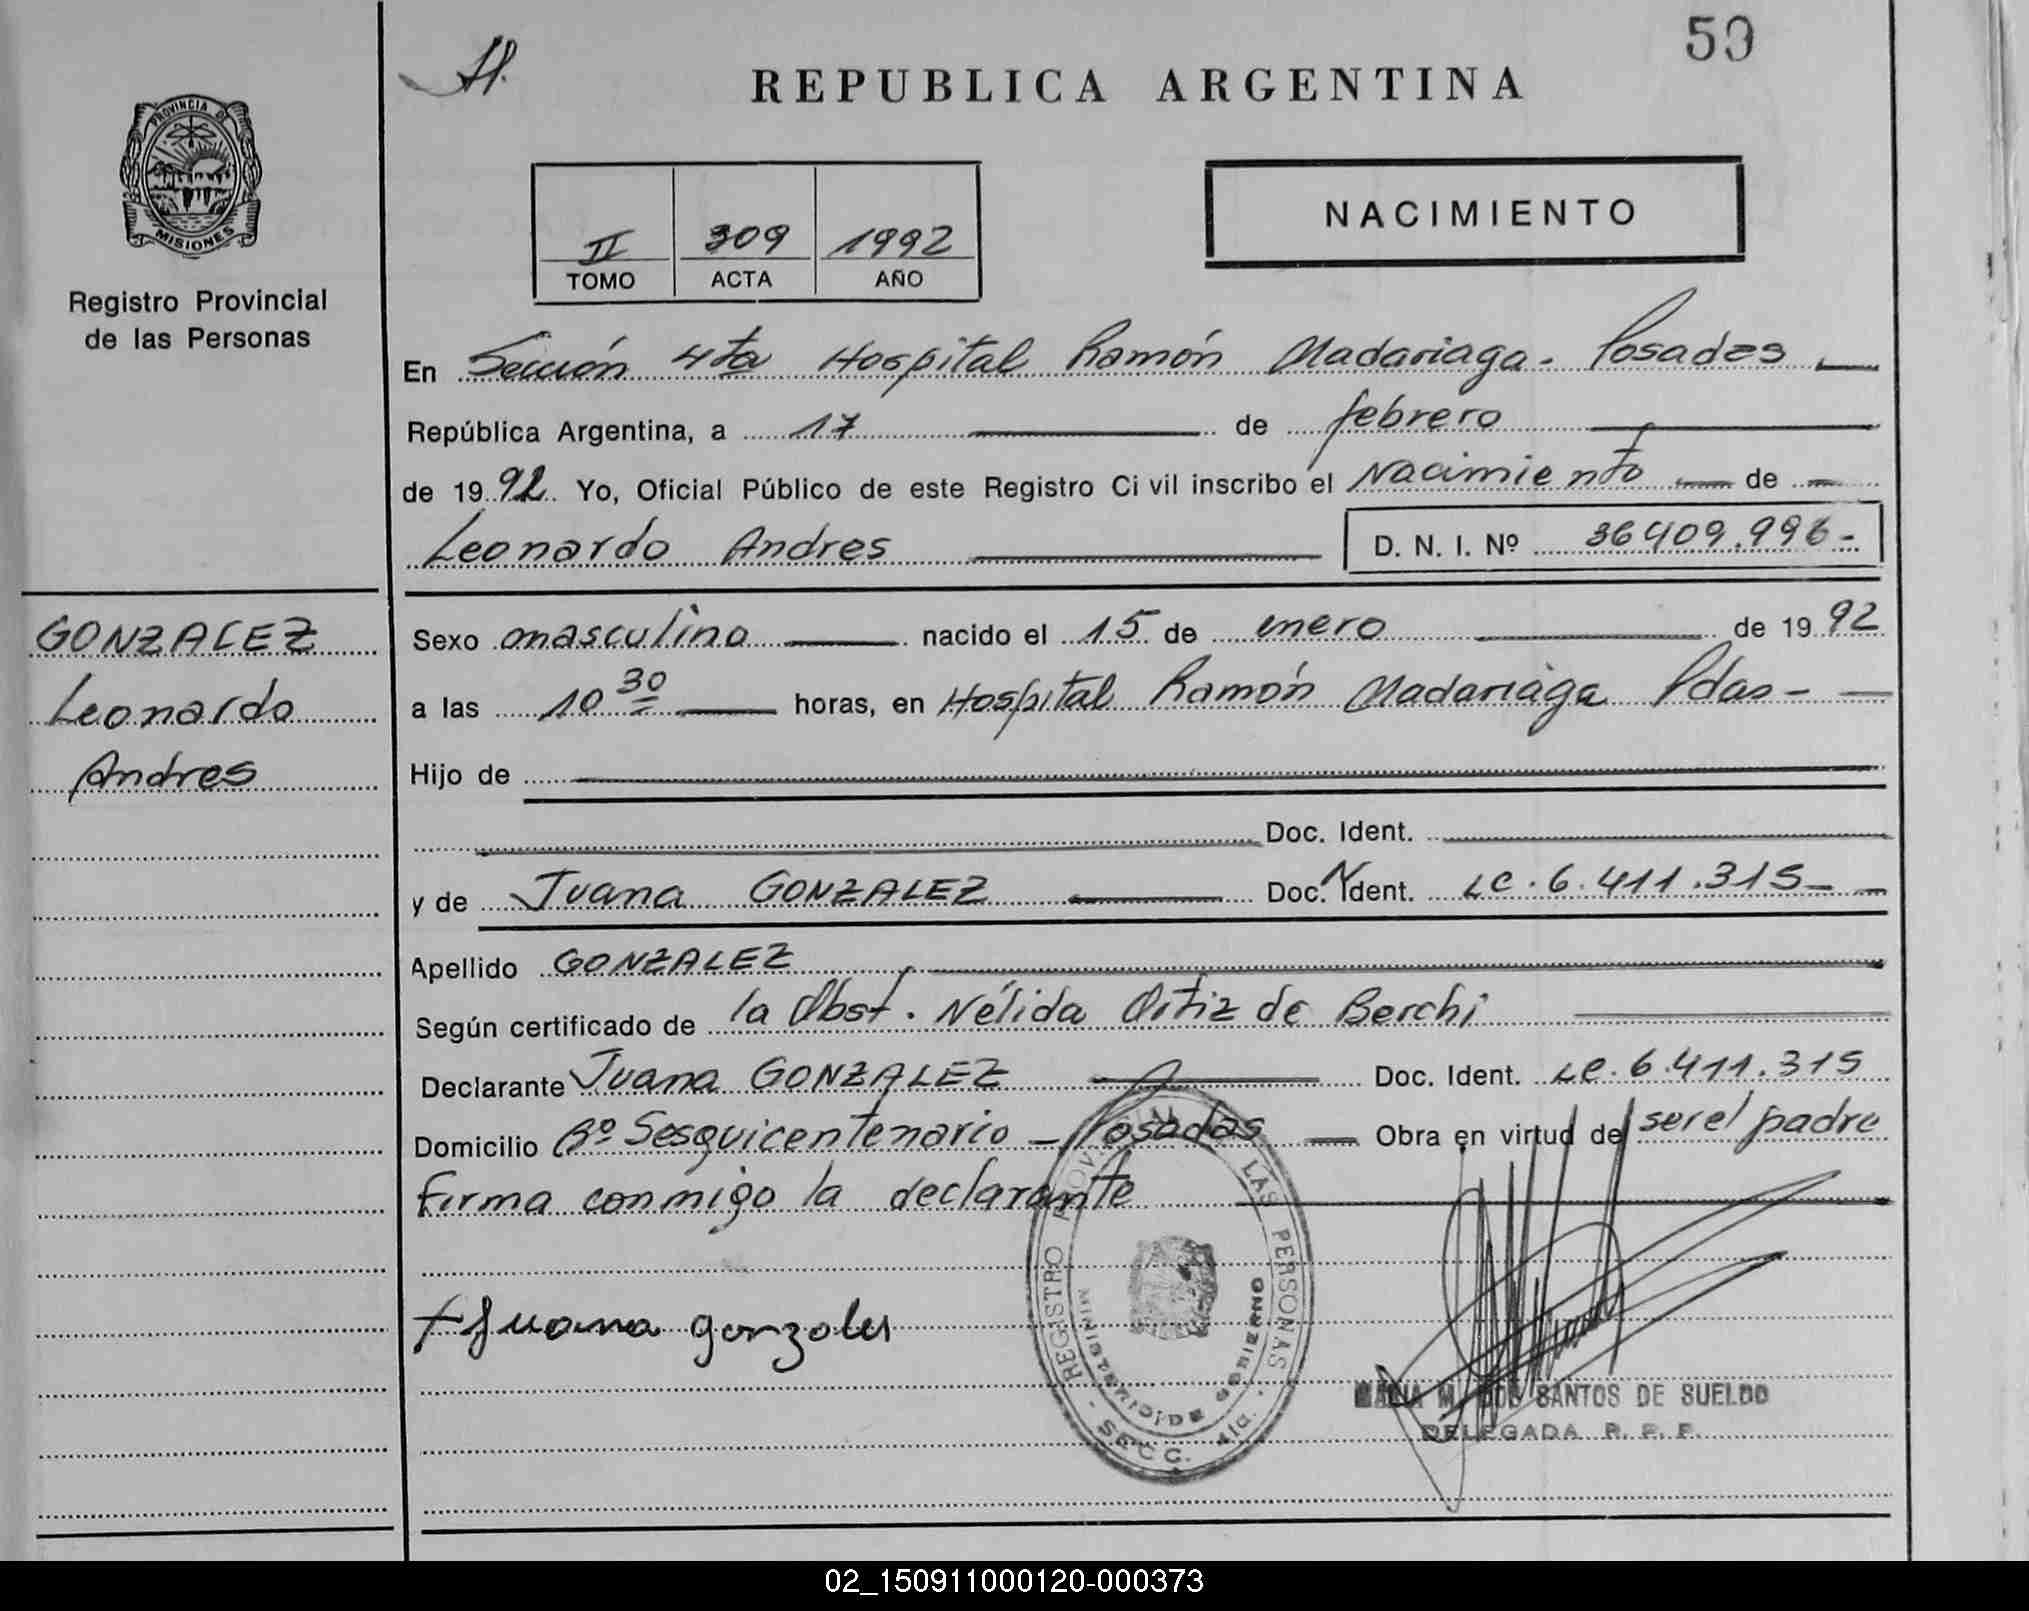 50
REPUBLICA ARGENTINA
PROVINCIA DE
MISIONES
Registro Provincial
de las Personas
II 309 1992
TOMO ACTA AÑO
NACIMIENTO
En Sección 4ta Hospital Ramón Madariaga - Posadas
República Argentina, a 17 de febrero
de 1992 Yo, Oficial Público de este Registro Civil inscribo el Nacimiento de
Leonardo Andres D. N. I. Nº 36409.996-
GONZALEZ
Leonardo
Andres
Sexo masculino nacido el 15 de enero de 1992
a las 10 30 horas, en Hospital Ramón Madariaga Pdas-
Hijo de
Doc. Ident.
y de Juana GONZALEZ Doc. Ident. LC. 6.411.315-
Apellido GONZALEZ
Según certificado de la Obst. Nélida Ortiz de Berchi
Declarante Juana GONZALEZ Doc. Ident. LC. 6.411.315
Domicilio Bº Sesquicentenario - Posadas Obra en virtud de ser el padre
Firma conmigo la declarante
Juana gonzales
REGISTRO PROVINCIAL DE LAS PERSONAS
MINISTERIO DE GOBIERNO
- SECC. 4ta. -
MARIA M. DOS SANTOS DE SUELDO
DELEGADA R. P. P.
02_150911000120-000373